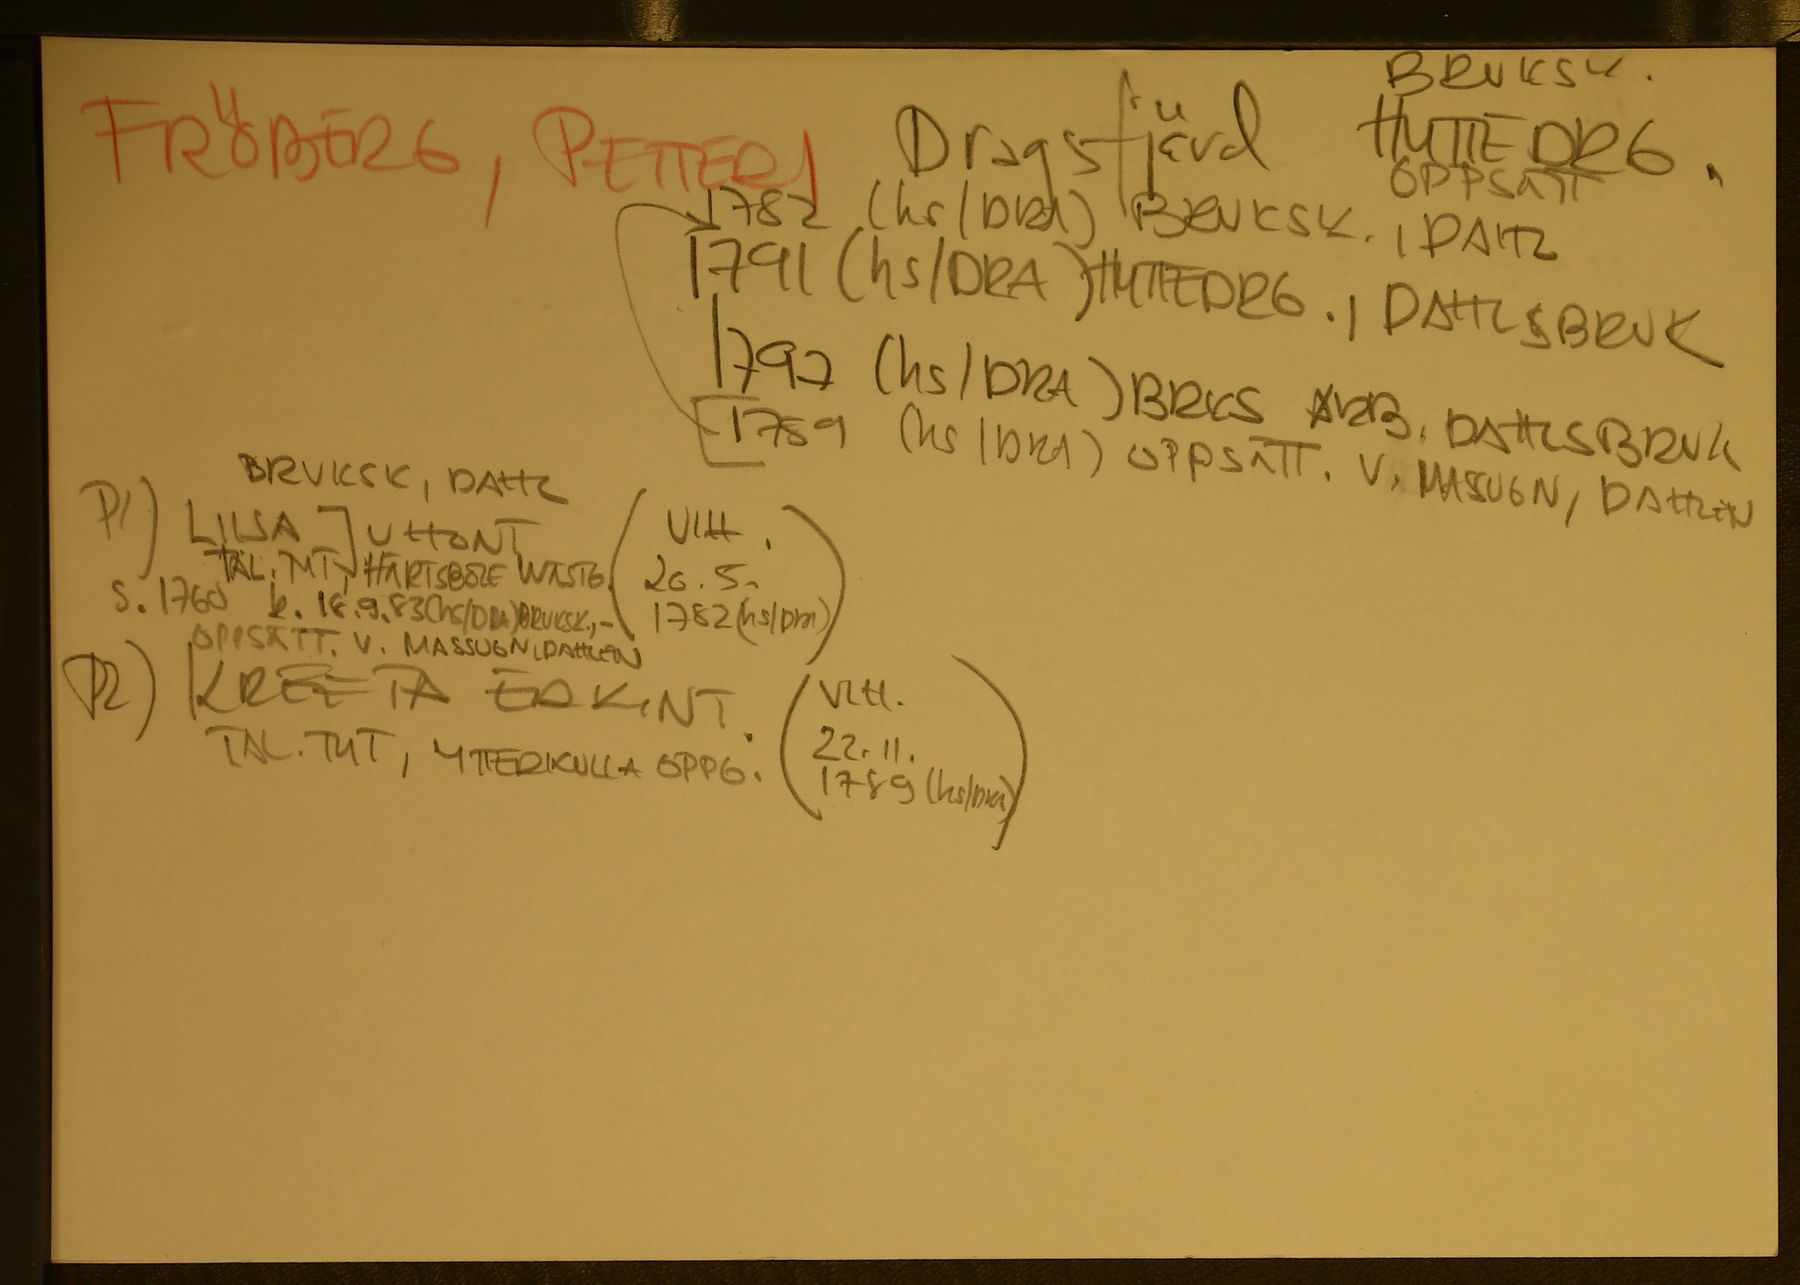 BRUKSK.
FRÖBERG, PETTER Dragsfjärd HYTTEDRG.
OPPSÄTT
1782 (hs/DRA) BRUKSK., DAHL
1791 (hs/DRA) HYTTEDRG., DAHLSBRUK
1797 (hs/DRA) BRKS ARB, DAHLSBRUK
1789 (hs/DRA) OPPSÄTT. V. MASSUGN, DAHLEN
BRUKSK, DAHL
P1) LIISA JUHONT (VIH.
TAL. TYT, HERTSBÖLE WÄSTG. 26.5.
S. 1760 k. 18.9.83 (hs/DRA) BRUKSK., 1782 (hs/DRA)
OPPSÄTT. V. MASSUGN, DAHLEN
P2) KREETA ERKINT. (VIH.
TAL. TYT, YTTERKULLA OPPG. 22.11.
1789 (hs/DRA)